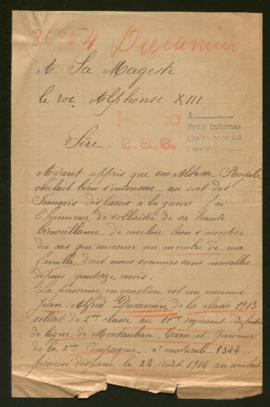 86954 Ducamin
A Sa Majesté
le roi Alphonse XIII
Sire,
Ayant appris que son Altesse Royale
voulait bien s'interesser au sort des
français disparus à la guerre j'ai
l'honneur de solliciter de sa haute
bienveillance de vouloir bien s'occuper
du cas qui concerne un membre de ma
famille dont nous sommes sans nouvelles
depuis quatorze mois.
La personne en question est un nommé
Jean, Alfred Ducamin de la classe 1913
soldat de 2me classe au 11e régiment
de ligne de Montauban, Tarn et Garonne
de la 2me Compagnie, matricule 8344
disparu le 22 Août 1914 au combat